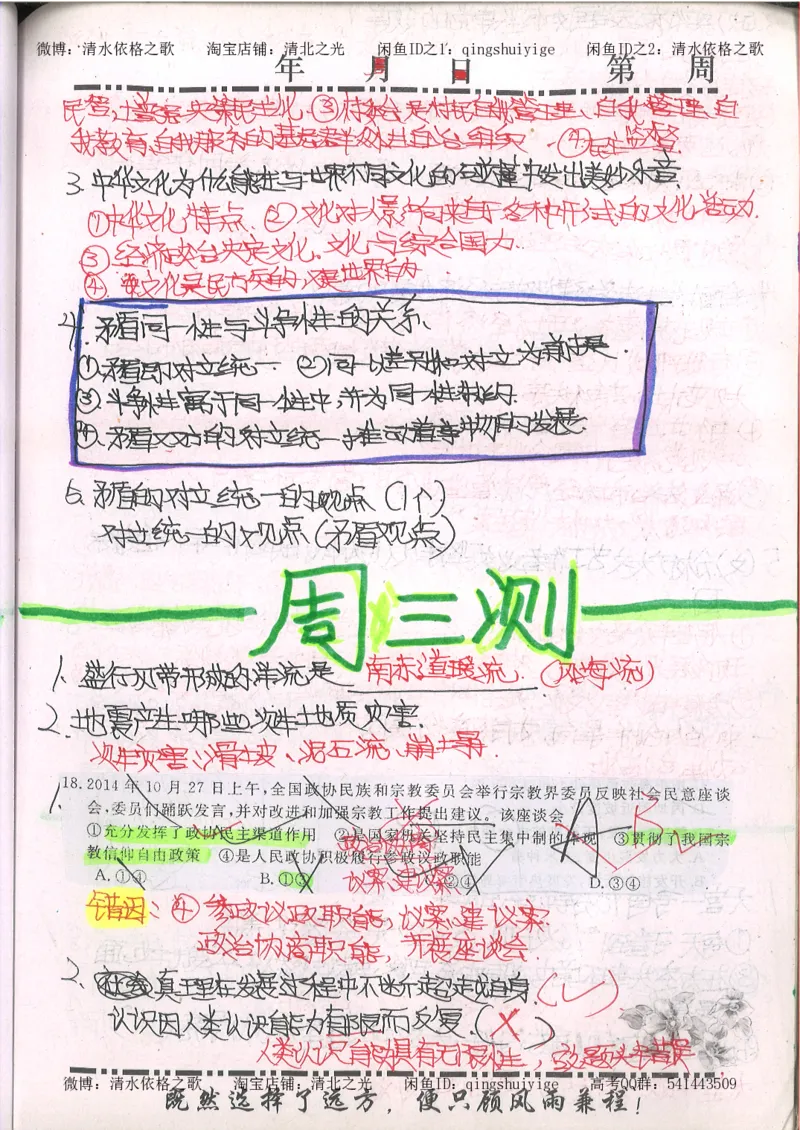 微博：清水依格之歌 淘宝店铺：清北之光 闲鱼ID之1：qingshuiyige 闲鱼ID之2：清水依格之歌
年 月 日 第 周
我教育、自我服务的基层群众性自治组织 ④民主监督
3. 中华文化为什么能在与世界不同文化的交流中发出美妙乐音.
①中华文化特点、②文化对人影响来自于各种形式的文化活动.
③经济政治决定文化. 文化与综合国力
④文化是民族的,又是世界的
4. 矛盾同一性与斗争性的关系.
①矛盾即对立统一 ②同一以差别和对立为前提.
③斗争性寓于同一性中,并为同一性制约.
④矛盾双方的对立统一推动着事物的发展
6. 矛盾的对立统一的观点 (1个)
对立统一的观点 (矛盾观点)
周三测
1. 盛行风带形成的洋流是 南赤道暖流. (风海流)
2. 地震产生哪些次生地质灾害.
次生灾害：滑坡、泥石流、崩塌.
18. 2014 年 10 月 27 日上午，全国政协民族和宗教委员会举行宗教界委员反映社会民意座谈
1. 会，委员们踊跃发言，并对改进和加强宗教工作提出建议。该座谈会 A B
①充分发挥了政协民主渠道作用 ②是国家机关坚持民主集中制的体现 ③贯彻了我国宗
教信仰自由政策 ④是人民政协积极履行参政议政职能
A. ①④ B. ①③ C. ②④ D. ③④
议案 建议案
错因：④参政议政职能,议案、建议案
政治协商职能,开展座谈会.
2. 真理在发展过程中不断超越自身.(✓)
认识因人类认识能力有限而反复.(×)
人类认识能力具有无限性,
微博：清水依格之歌 淘宝店铺：清北之光 闲鱼ID：qingshuiyige 高考QQ群：541443509
既然选择了远方，便只顾风雨兼程！